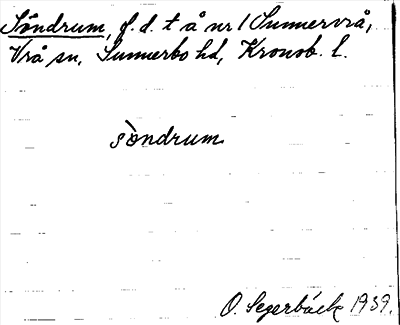 Söndrum, f.d. t å nr 1 Sunnervrå,
Vrå sn, Sunnerbo hd, Kronob. l.
sòndrum
O. Segerbäck 1939.